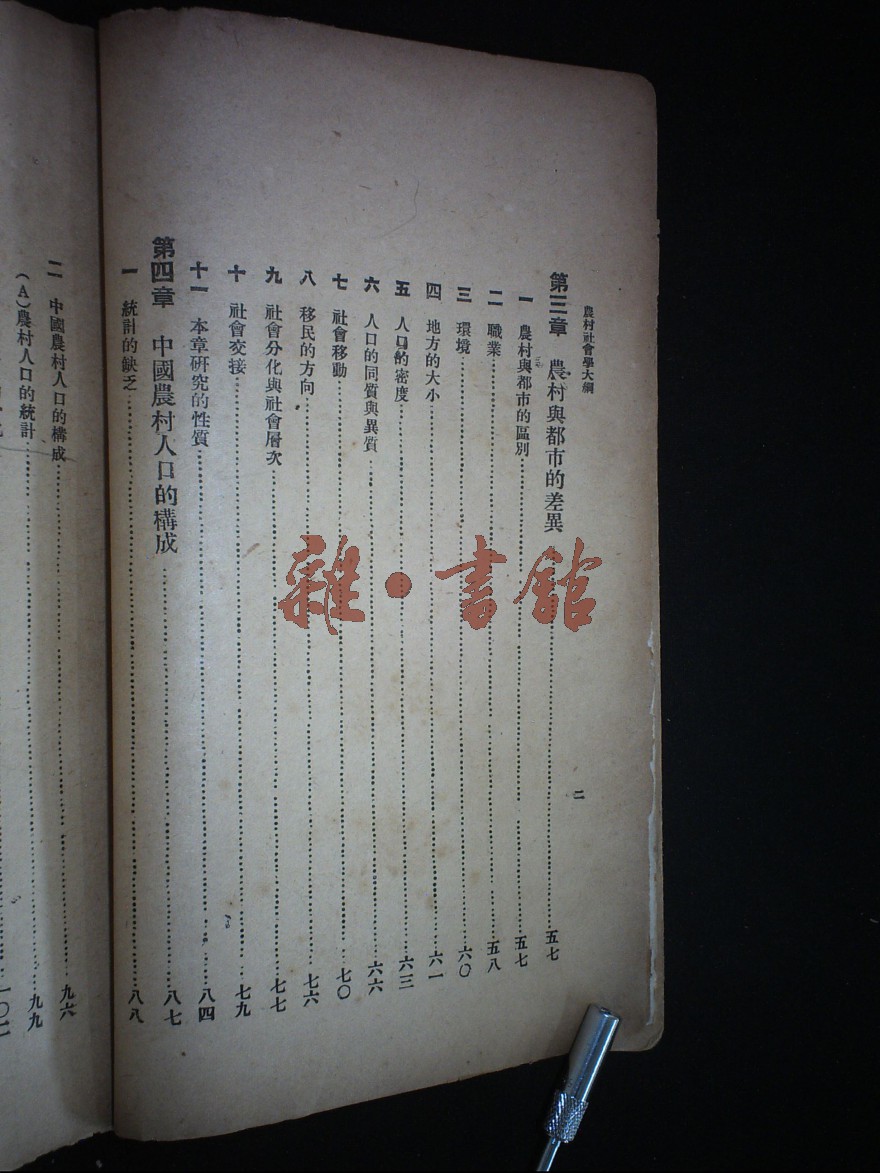 農村社會學大綱
二
第三章 農村與都市的差異……五七
一 農村與都市的區別……五七
二 職業……五八
三 環境……六〇
四 地方的大小……六一
五 人口的密度……六三
六 人口的同質與異質……六六
七 社會移動……七〇
八 移民的方向……七六
九 社會分化與社會層次……七七
十 社會交接……七九
十一 本章研究的性質……八四
第四章 中國農村人口的構成……八七
一 統計的缺乏……八八
二 中國農村人口的構成……九六
(A)農村人口的統計……九九
雜·書館